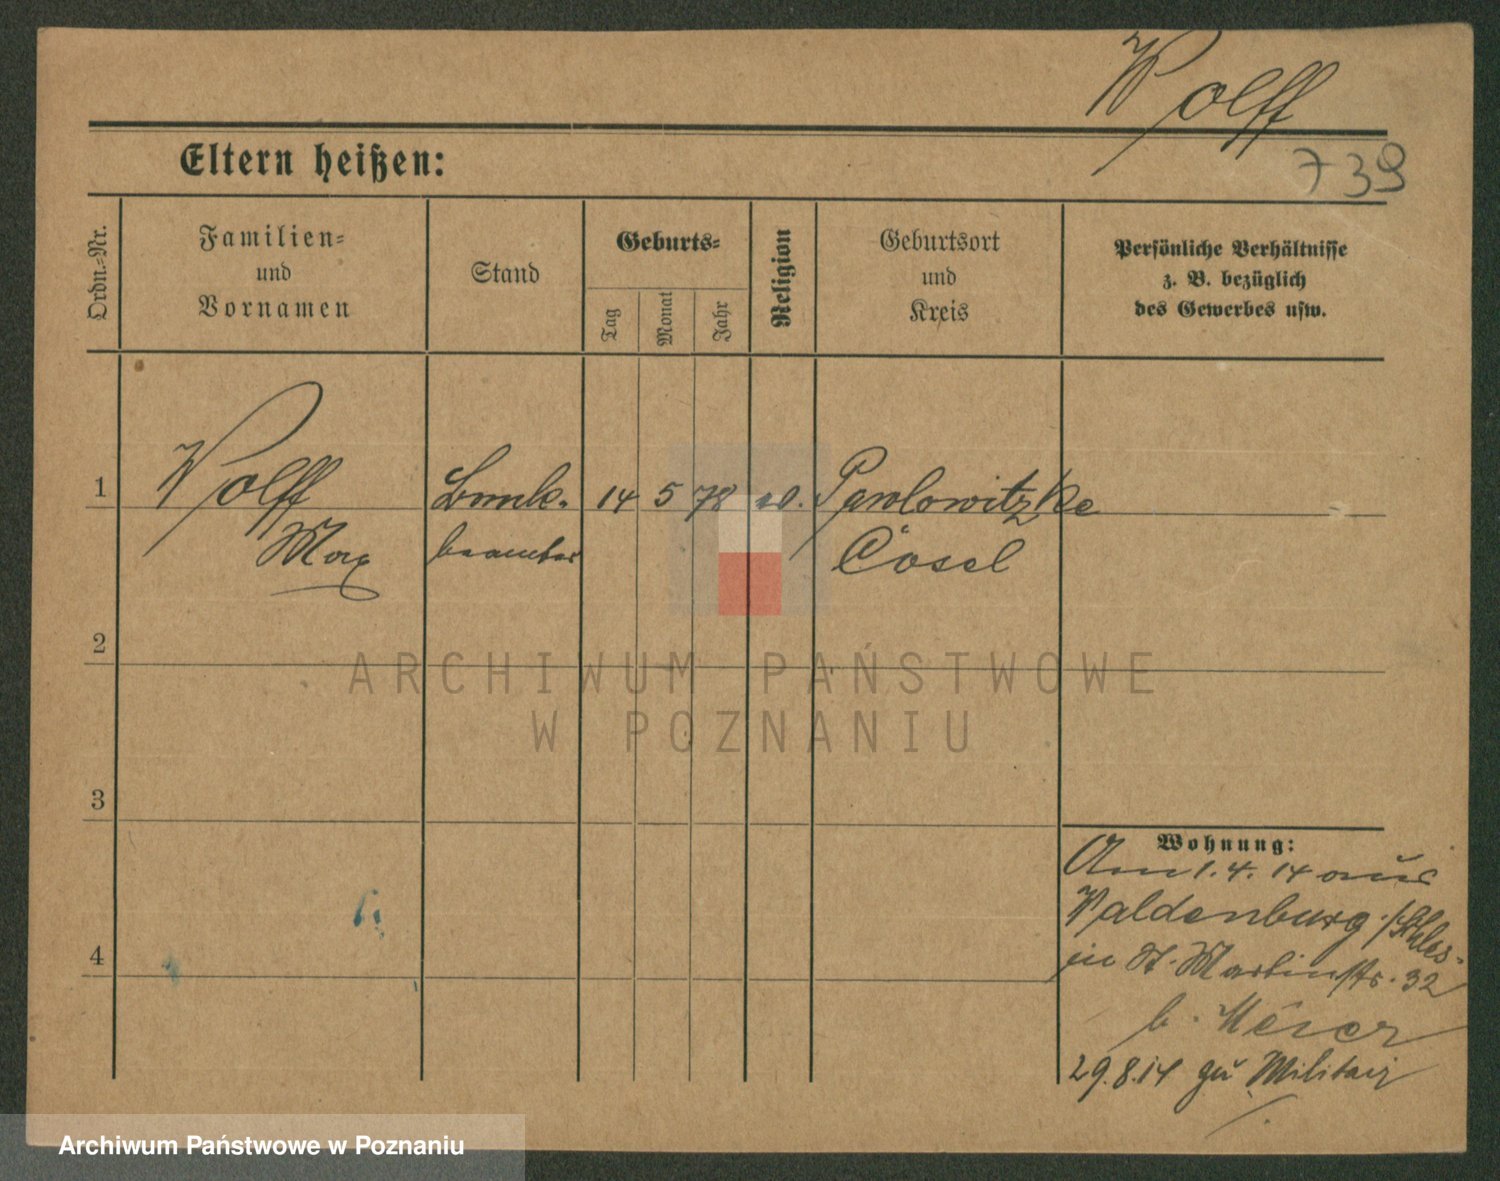 Wolff
739
Eltern heißen:
Ordn.-Nr.
Familien-
und
Vornamen
Stand
Geburts-
Tag
Monat
Jahr
Religion
Geburtsort
und
Kreis
Persönliche Verhältnisse
z. B. bezüglich
des Gewerbes usw.
1 Wolff Bank- 14 5 78 Pawlowitzke
Max beamter Cosel
2
3
4
Wohnung:
Am 1.4.14 aus
Waldenburg /Schles.
in St. Martinstr. 32
b. Meier
29.8.14 zu Militair
ARCHIWUM PAŃSTWOWE
W POZNANIU
Archiwum Państwowe w Poznaniu